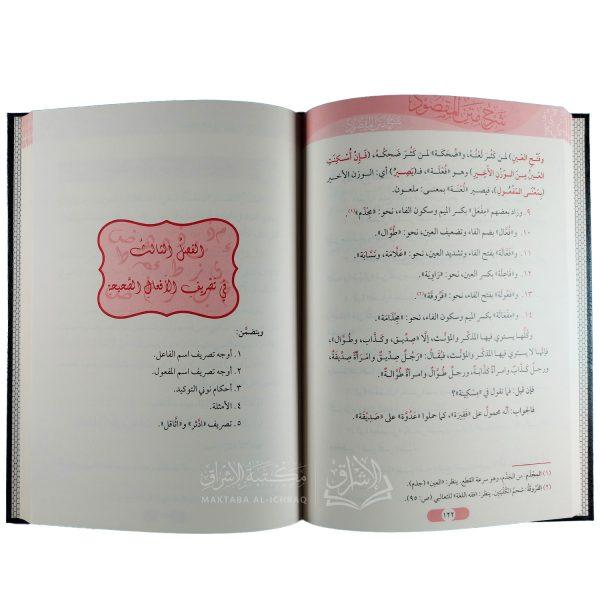 شرح متن المقصود
وفتح العين) لمن كثر لعنه، و«ضُحَكَة» لمن كثر ضحكه، (فَإِنْ أَسْكَنْتَ
العَيْنَ مِنَ الوَزْنِ الأَخِيرِ) وهو «فُعَلَة»، فـ(يَصِيرُ) أي: الوزن الأخير
(بِمَعْنَى المَفْعُولِ)، فيصير «لُعْنَة» بمعنى: ملعون.
٩. وزاد بعضهم «مِفْعَل» بكسر الميم وسكون الفاء، نحو: «مِجْذَم»(١).
١٠. و«فُعَّال» بضم الفاء وتضعيف العين، نحو: «طُوَّال».
١١. و«فَعَّالَة» بفتح الفاء وتشديد العين، نحو: «عَلَّامَة، ونَسَّابَة».
١٢. و«فاعِلَة» بكسر العين، نحو: «رَاوِيَة».
١٣. و«فَعُولَة» بفتح الفاء، نحو: «فَرُوقَة»(٢).
١٤. و«مِفْعَالَة» بكسر الميم وسكون الفاء، نحو: «مِجْذَامَة».
وكلُّها يستوي فيها المذكر والمؤنث، إلَّا «صِدِّيق، وكَذَّاب، وطُوَّال»،
فإنَّها لا يستوي فيها المذكر والمؤنث، فيُقَالُ: «رَجُلٌ صِدِّيقٌ وَامْرَأَةٌ صِدِّيقَةٌ،
ورجل كذَّابٌ وامرأة كذَّابة، ورجل طُوَّالٌ وامرأة طُوَّالة».
فإن قيل: فما نقول في «مِسْكِينَة»؟
فالجواب: أنَّه محمول على «فقيرة»، كما حملوا «عَدُوَّة» على «صَدِيقَة».
(١) المِجْذَم: من الجَذْم، وهو سرعة القطع. ينظر: «العين» (جذم).
(٢) الفَرُوقَة: شحم الكُلْيتين. ينظر: «فقه اللغة» للثعالبي (ص: ٩٥).
١٢٢
الفصل الثالث
في تصريف الأفعال الصحيحة
ويتضمَّن:
١. أوجه تصريف اسم الفاعل.
٢. أوجه تصريف اسم المفعول.
٣. أحكام نوني التوكيد.
٤. الأمثلة.
٥. تصريف «ادَّثر» و«اثَّاقل».
مكتبة الإشراق
MAKTABA AL-ICHRAQ
الإشراق